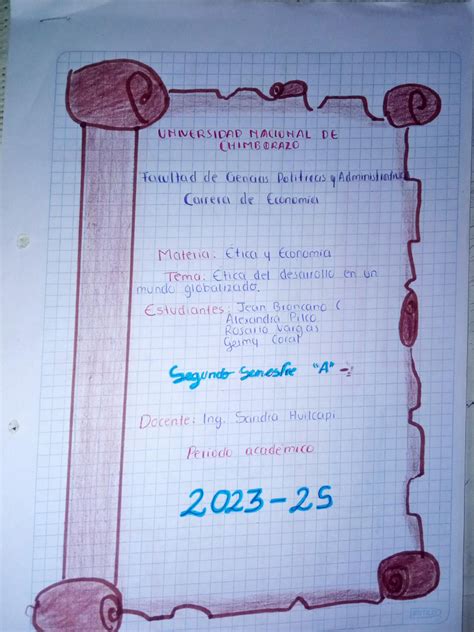 UNIVERSIDAD NACIONAL DE
CHIMBORAZO
Facultad de Ciencias Politicas y Administrativas
Carrera de Economia
Materia: Etica y Economia
Tema: Etica del desarrollo en un
mundo globalizado.
Estudiantes: Jean Broncano C
Alexandra Pilco
Rosario Vargas
Gesmy Coral
Segundo Semestre "A" -
Docente: Ing. Sandra Huilcapi
Periodo académico
2023-2S